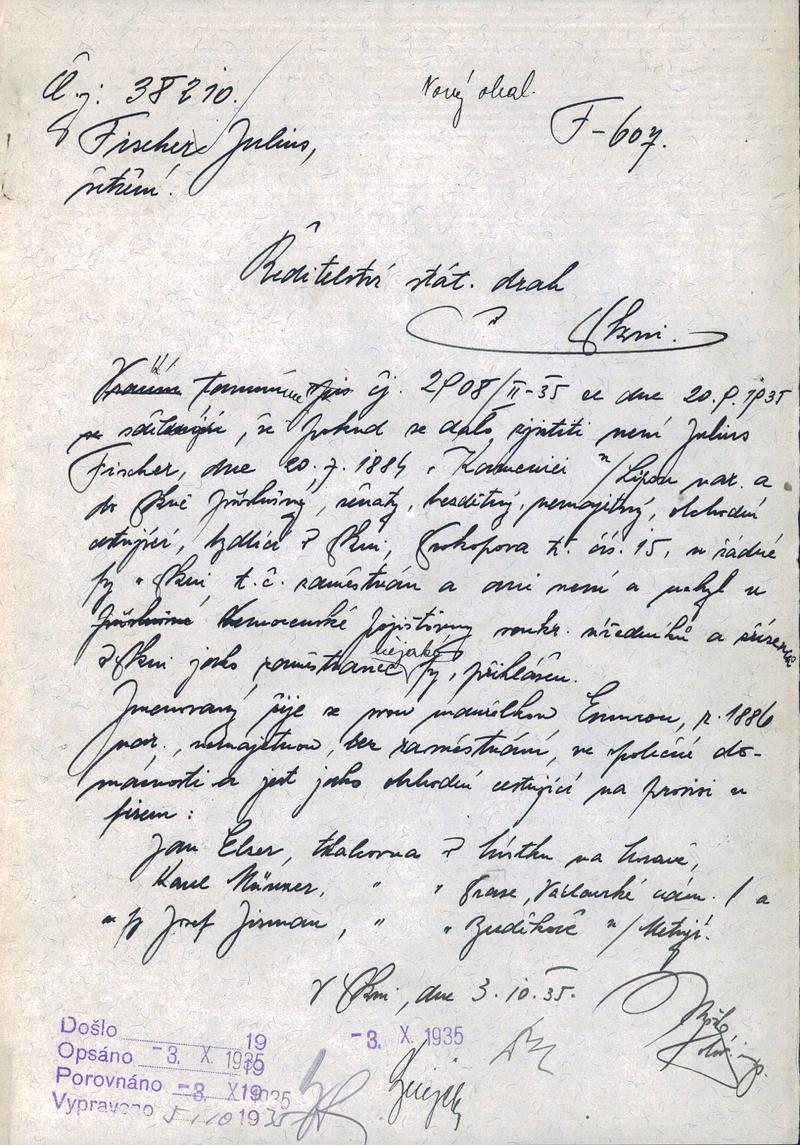 Č.j: 38210.
Nový obal.
F-607.
Fischer Julius,
šetření.
Ředitelství stát. drah
v Plzni.
čj. 2908/II-35 ze dne 20.9.1935
se , že pokud se dalo zjistiti není Julius
Fischer, dne 20.7.1884 v Kamenici n/Lipou nar. a
do Plzně příslušný, ženatý, bezdětný, nemajetný, obchodní
cestující, bydlící v Plzni, Prokopova tř. čís. 15, u žádné
fy v Plzni t.č. zaměstnán a ani není a nebyl u
příslušné Nemocenské pojišťovny soukr. úředníků a zřízenců
v Plzni jako zaměstnanec nějaké fy, přihlášen.
Jmenovaný žije se svou manželkou Emmou, r. 1886
nar., nemajetnou, bez zaměstnání, ve společné do-
mácnosti a jest jako obchodní cestující na provisi u
firem:
Jan Elzer, tkalcovna v Místku na Moravě,
Karel " " Praze, Václavské nám. 1 a
u fy Josef Jirman, " " Zvěřkově n/Metují.
V Plzni, dne 3.10.35.
Došlo 19
Opsáno -3. X. 1935 19
Porovnáno -3. X. 1935 19
Vypraveno 5/10 1935
-3. X. 1935